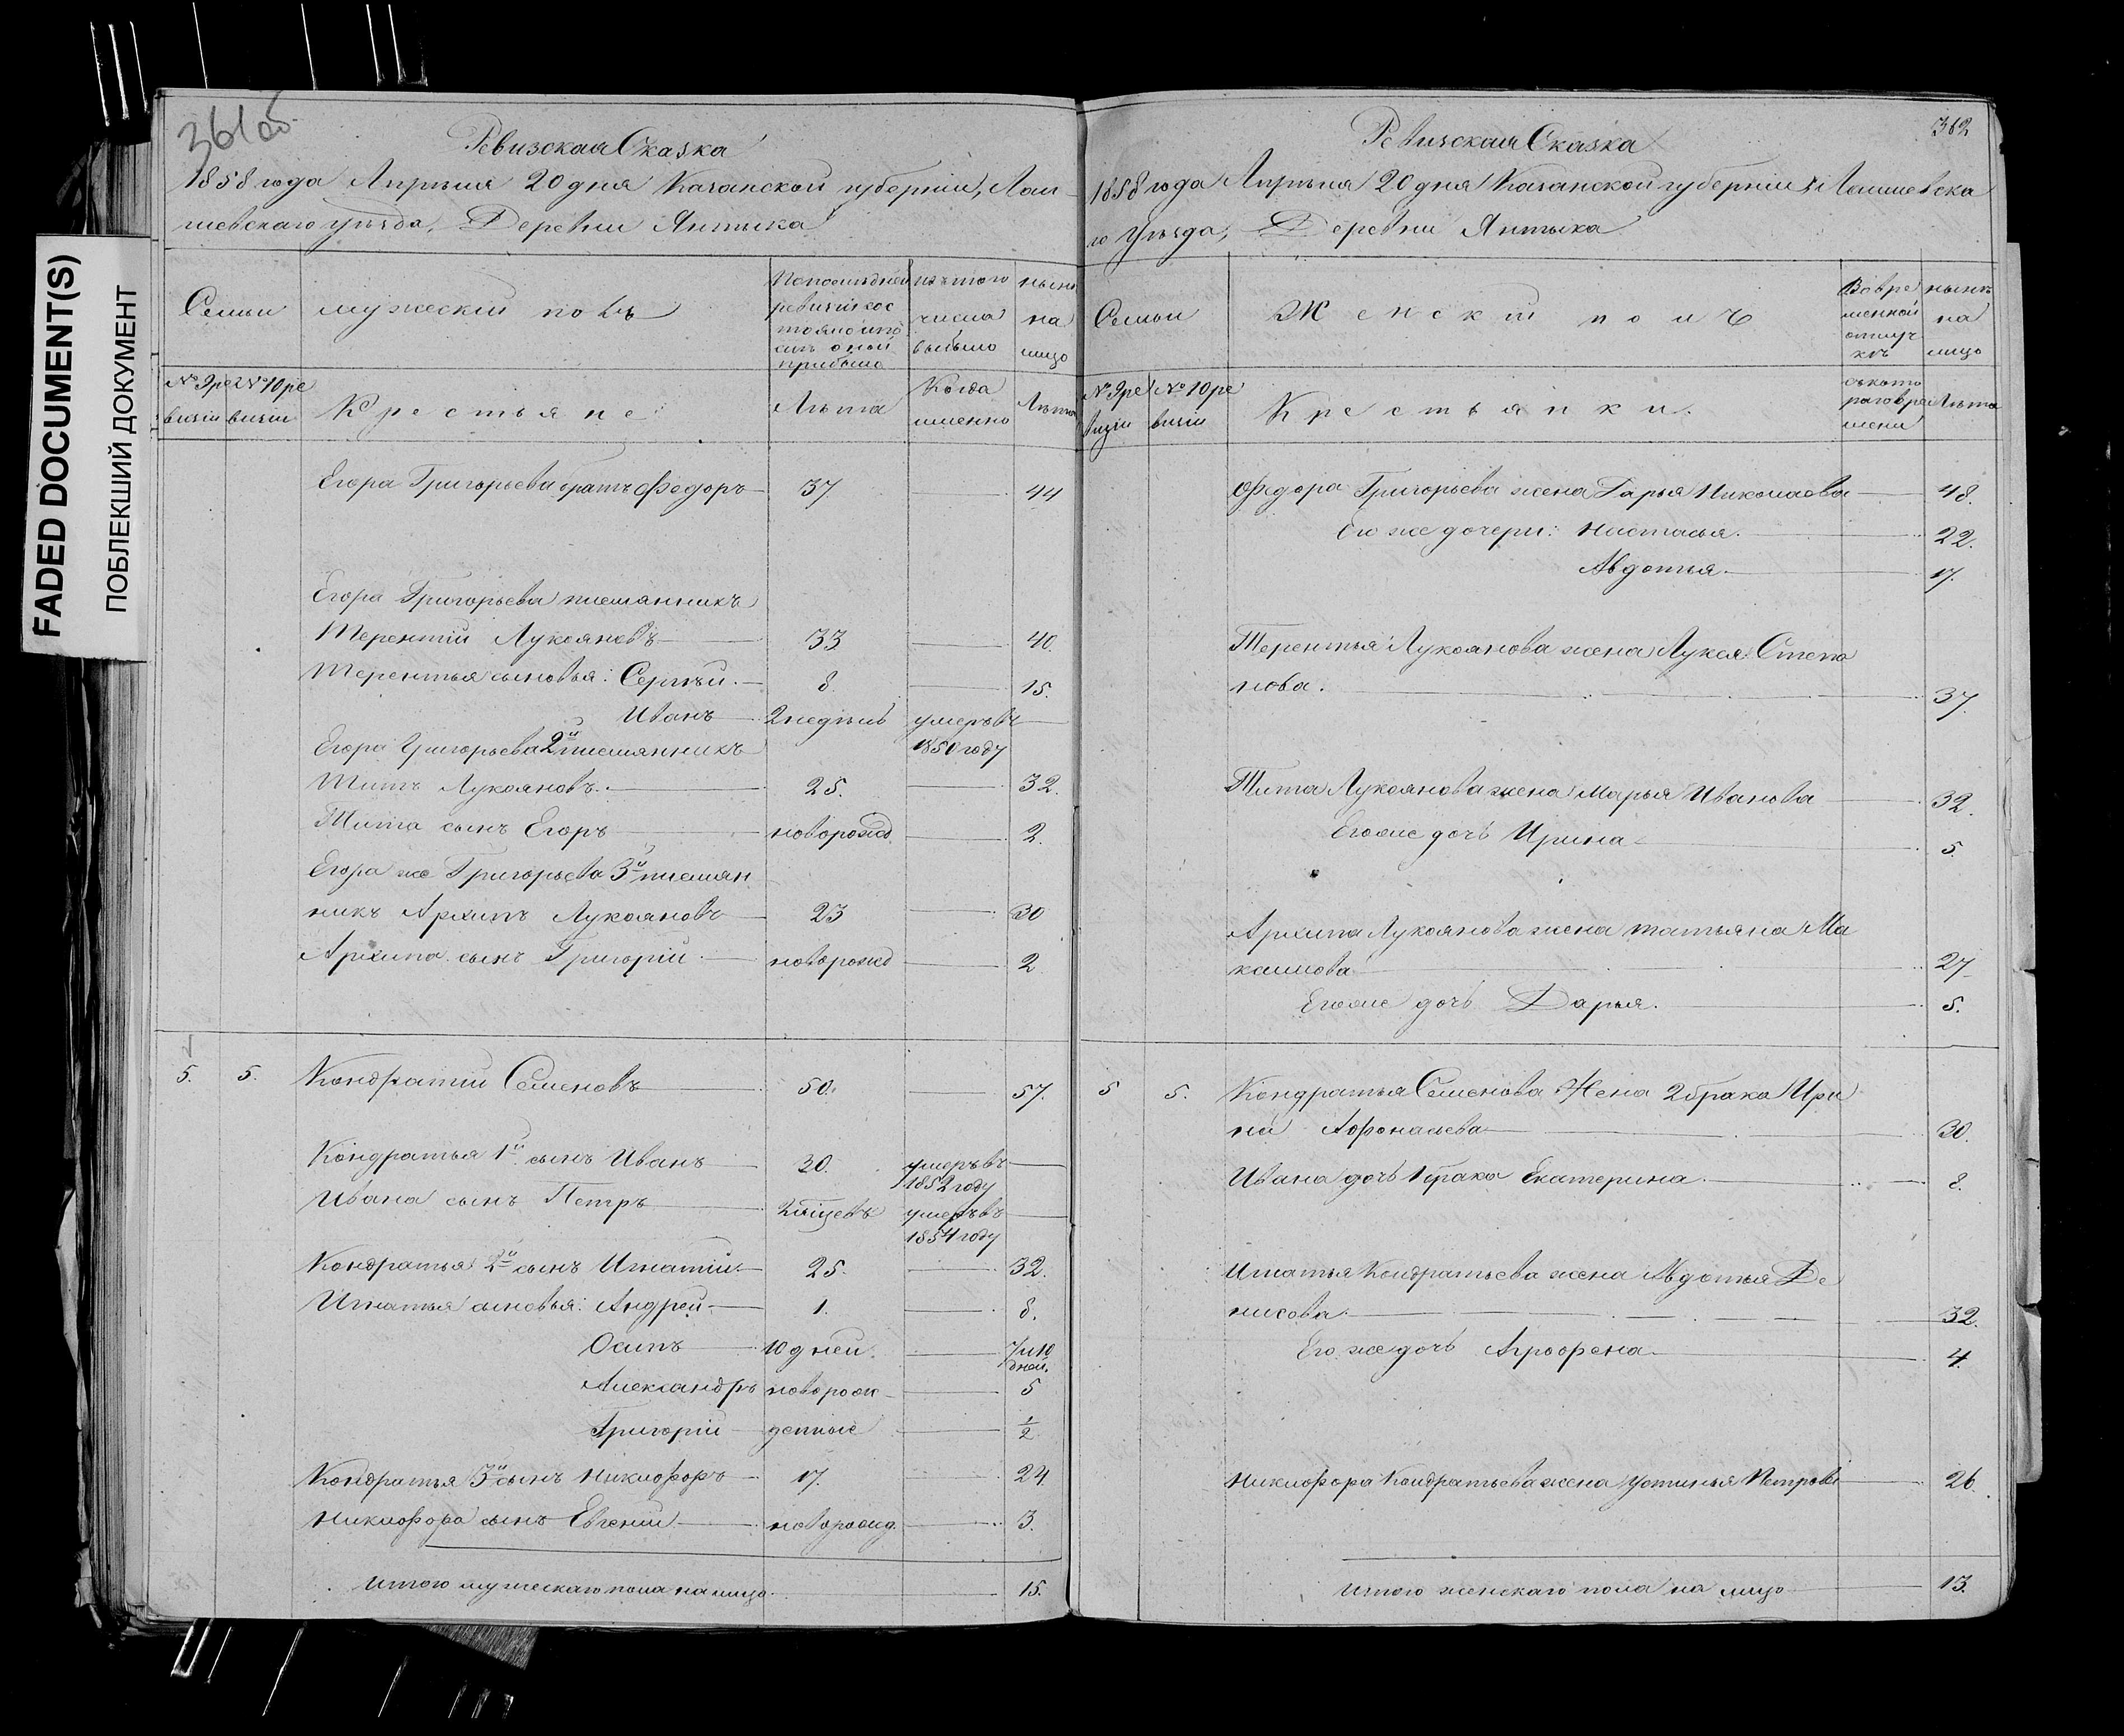 FADED DOCUMENT(S)
ПОБЛЕКШИЙ ДОКУМЕНТ
361об
Ревизская Сказка
1858 года Апрѣля 20 дня Казанской губерніи, Лаи-
шевскаго уѣзда, Деревни Янтыка
Семьи
мужескій полъ
По послѣдней
ревизіи сос
тояло и по
слѣ оной
прибыло
изъ того
числа
выбыло
нынѣ
на
лицо
№ 9 ре
визіи
№ 10 ре
визіи
Крестьяне
Лѣта
Когда
именно
Лѣта
Егора Григорьева братъ Федоръ 37. 44
Егора Григорьева племянникъ
Терентій Лукояновъ 33 40.
Терентья сыновья: Сергѣй. 8. 15.
Иванъ 2 недѣль умеръ въ
1850 году
Егора Григорьева 2й племянникъ
Титъ Лукояновъ. 25. 32.
Тита сынъ Егоръ новорожд. 2.
Егора же Григорьева 3й племян
никъ Архипъ Лукояновъ 23 30
Архипа сынъ Григорій новорожд 2
5. 5. Кондратій Семеновъ 50. 57.
Кондратья 1й сынъ Иванъ 30. умеръ въ
1852 году
Ивана сынъ Петръ умеръ въ
1854 году
Кондратья 2й сынъ Игнатій 25. 32.
Игнатья сыновья: Андрей 1. 8.
Осипъ 10 дней. 7 и 10
дней.
Александръ новорож- 5
Григорій денные 1/2
Кондратья 3й сынъ Никифоръ 17. 24.
Никифора сынъ Евгеній новорожд. 3.
Итого мужескаго пола на лицо. 15.
362
Ревизская Сказка
1858 года Апрѣля 20 дня Казанской губерніи Лаишевска
го Уѣзда, Деревни Янтыка
Семьи
Женскій полъ
Во вре
менной
отлуч
кѣ
нынѣ
на
лицо
№ 9 ре
визіи
№ 10 ре
визіи
Крестьянки.
съ кото
раго вре
мени
Лѣта
Федора Григорьева жена Дарья Николаева 48.
Его же дочери: Настасья. 22.
Авдотья. 17.
Терентья Лукоянова жена Лукея Степа
нова. 37.
Тита Лукоянова жена Марья Иванова 32.
Его же дочь Ирина 5.
Архипа Лукоянова жена Татьяна Ма
каимова 27
Его же дочь Дарья. 5.
5 5. Кондратья Семенова Жена 2 брака Ири
на Афонасьева 30.
Ивана дочь 1 брака Екатерина. 8.
Игнатья Кондратьева жена Авдотья Де
нисова. 32.
Его же дочь Аграфена. 4.
Никифора Кондратьева жена Устинья Петрова 26.
Итого женскаго пола на лицо 13.